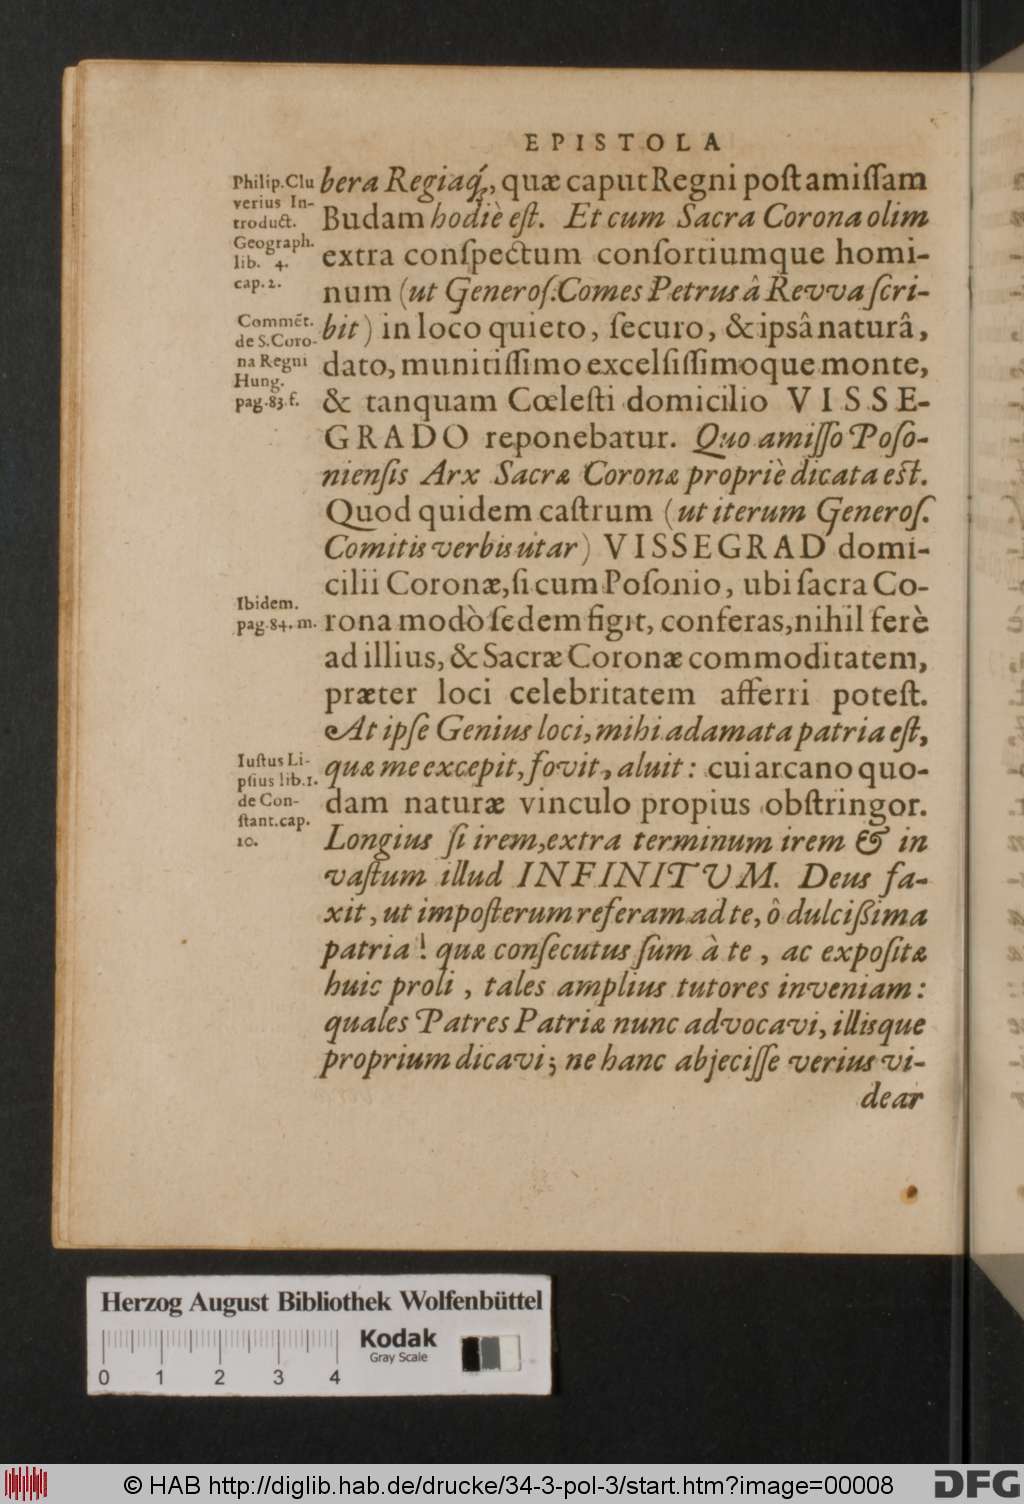 EPISTOLA
Philip.Clu
verius In-
troduct.
Geograph.
lib. 4.
cap.2.
Commēt.
de S.Coro-
na Regni
Hung.
pag.83.f.
Ibidem.
pag.84.m.
Iuſtus Li-
pſius lib.1.
de Con-
ſtant.cap.
10.
bera Regiaq́;, quæ caput Regni poſt amiſſam
Budam hodiè eſt. Et cum Sacra Corona olim
extra conſpectum conſortiumque homi-
num (ut Generoſ.Comes Petrus â Revva ſcri-
bit) in loco quieto, ſecuro, & ipsâ naturâ,
dato, munitiſſimo excelſiſſimoque monte,
& tanquam Cœleſti domicilio VISSE-
GRADO reponebatur. Quo amiſſo Poſo-
nienſis Arx Sacræ Coronæ propriè dicata eſt.
Quod quidem caſtrum (ut iterum Generoſ.
Comitis verbis utar) VISSEGRAD domi-
cilii Coronæ, ſi cum Poſonio, ubi ſacra Co-
rona modò ſedem figit, conferas, nihil ferè
ad illius, & Sacræ Coronæ commoditatem,
præter loci celebritatem afferri poteſt.
At ipſe Genius loci, mihi adamata patria eſt,
quæ me excepit, fovit, aluit: cui arcano quo-
dam naturæ vinculo propius obſtringor.
Longius ſi irem, extra terminum irem & in
vaſtum illud INFINITUM. Deus fa-
xit, ut impoſterum referam ad te, ô dulciſsima
patria! quæ conſecutus ſum à te, ac expoſitæ
huic proli, tales amplius tutores inveniam:
quales Patres Patriæ nunc advocavi, illisque
proprium dicavi; ne hanc abjeciſſe verius vi-
dear
Herzog August Bibliothek Wolfenbüttel
Kodak
Gray Scale
0 1 2 3 4
© HAB http://diglib.hab.de/drucke/34-3-pol-3/start.htm?image=00008
DFG